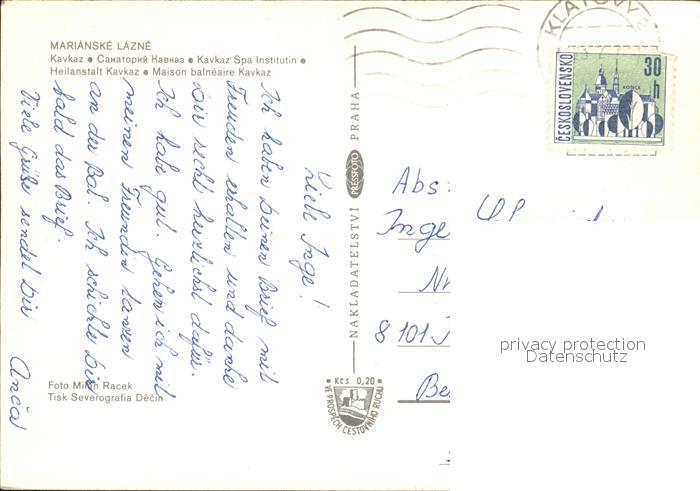 MARIÁNSKÉ LÁZNĚ
Kavkaz ● Санаторий Кавказ ● Kavkaz Spa Institutin ●
Heilanstalt Kavkaz ● Maison balnéaire Kavkaz
Liebe Inge!
Ich haben Deinen Brief mit
Freuden erhalten und danke
Dir recht herzlichst dafür.
Ich habe gut. Gehen ich mit
meinen Freundin tanzen
an der Bal. Ich schichte Dir
bald das Brief.
Viele Grüße sendet Dir
Anča
Foto Milan Racek
Tisk Severografia Děčín
NAKLADATELSTVÍ PRESSFOTO PRAHA
Kčs 0,20
VE PROSPĚCH CESTOVNÍHO RUCHU
KLATOVY
ČESKOSLOVENSKO
30 h
KOŠICE
Abs:
Inge
8101
privacy protection
Datenschutz